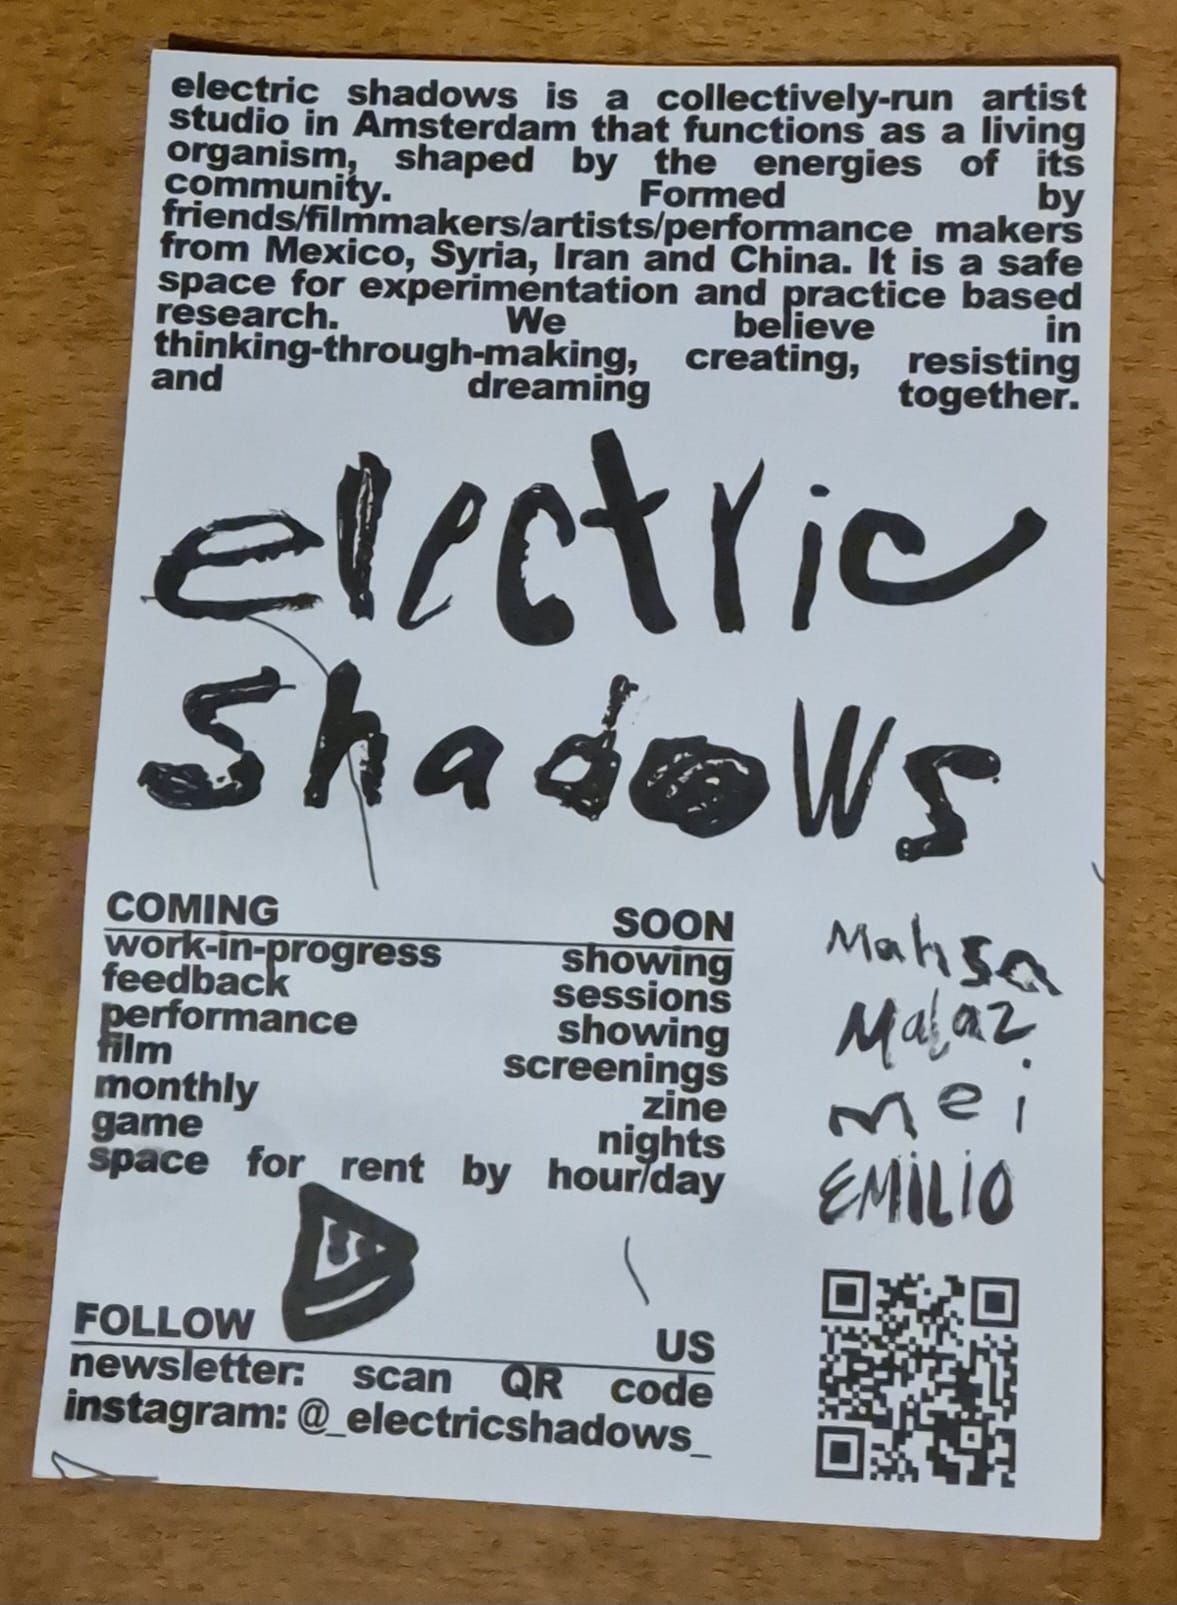 electric shadows is a collectively-run artist
studio in Amsterdam that functions as a living
organism, shaped by the energies of its
community. Formed by
friends/filmmakers/artists/performance makers
from Mexico, Syria, Iran and China. It is a safe
space for experimentation and practice based
research. We believe in
thinking-through-making, creating, resisting
and dreaming together.
electric
shadows
COMING SOON
work-in-progress showing
feedback sessions
performance showing
film screenings
monthly zine
game nights
space for rent by hour/day
Mahsa
Malaz
mei
EMiLiO
FOLLOW US
newsletter: scan QR code
instagram: @_electricshadows_